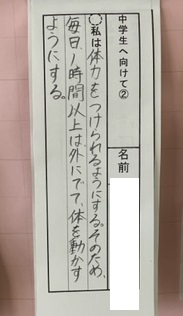 中学生へ向けて②
名前
○私は体力をつけられるようにする。そのため、
毎日1時間以上は外にでて、体を動かす
ようにする。